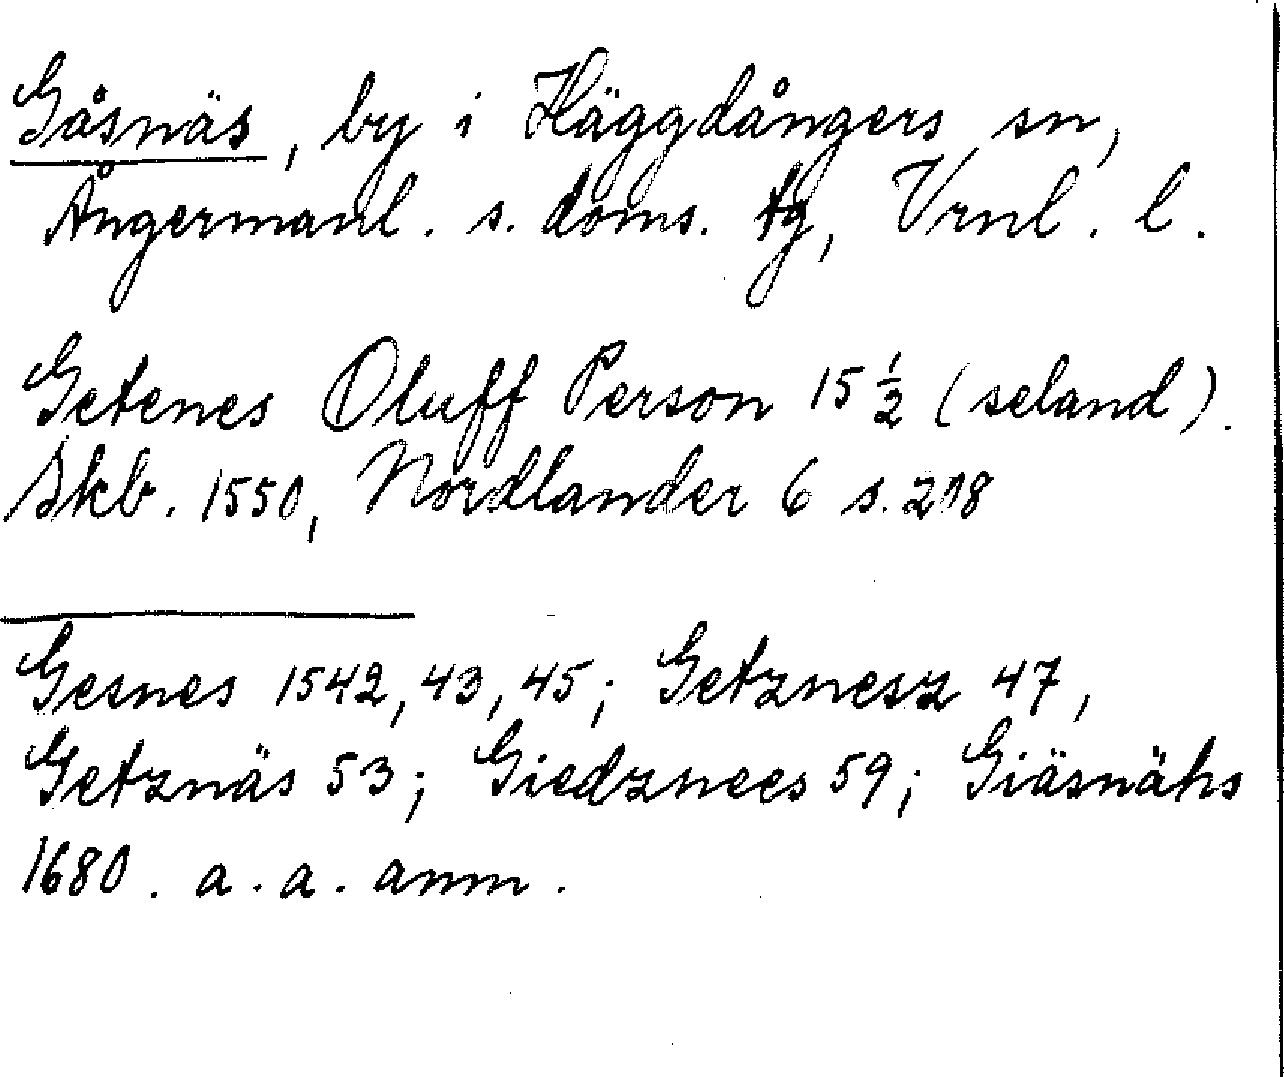 Gåsnäs, by i Häggdångers sn,
Ångermanl. s. doms. tg, Vrnl. l.
Getenes Oluff Person 15 ½ (seland).
Skb. 1550, Nordlander 6 s. 218
Gesnes 1542, 43, 45; Getznesz 47,
Getznäs 53; Giedznees 59; Giäsnähs
1680. a. a. anm.